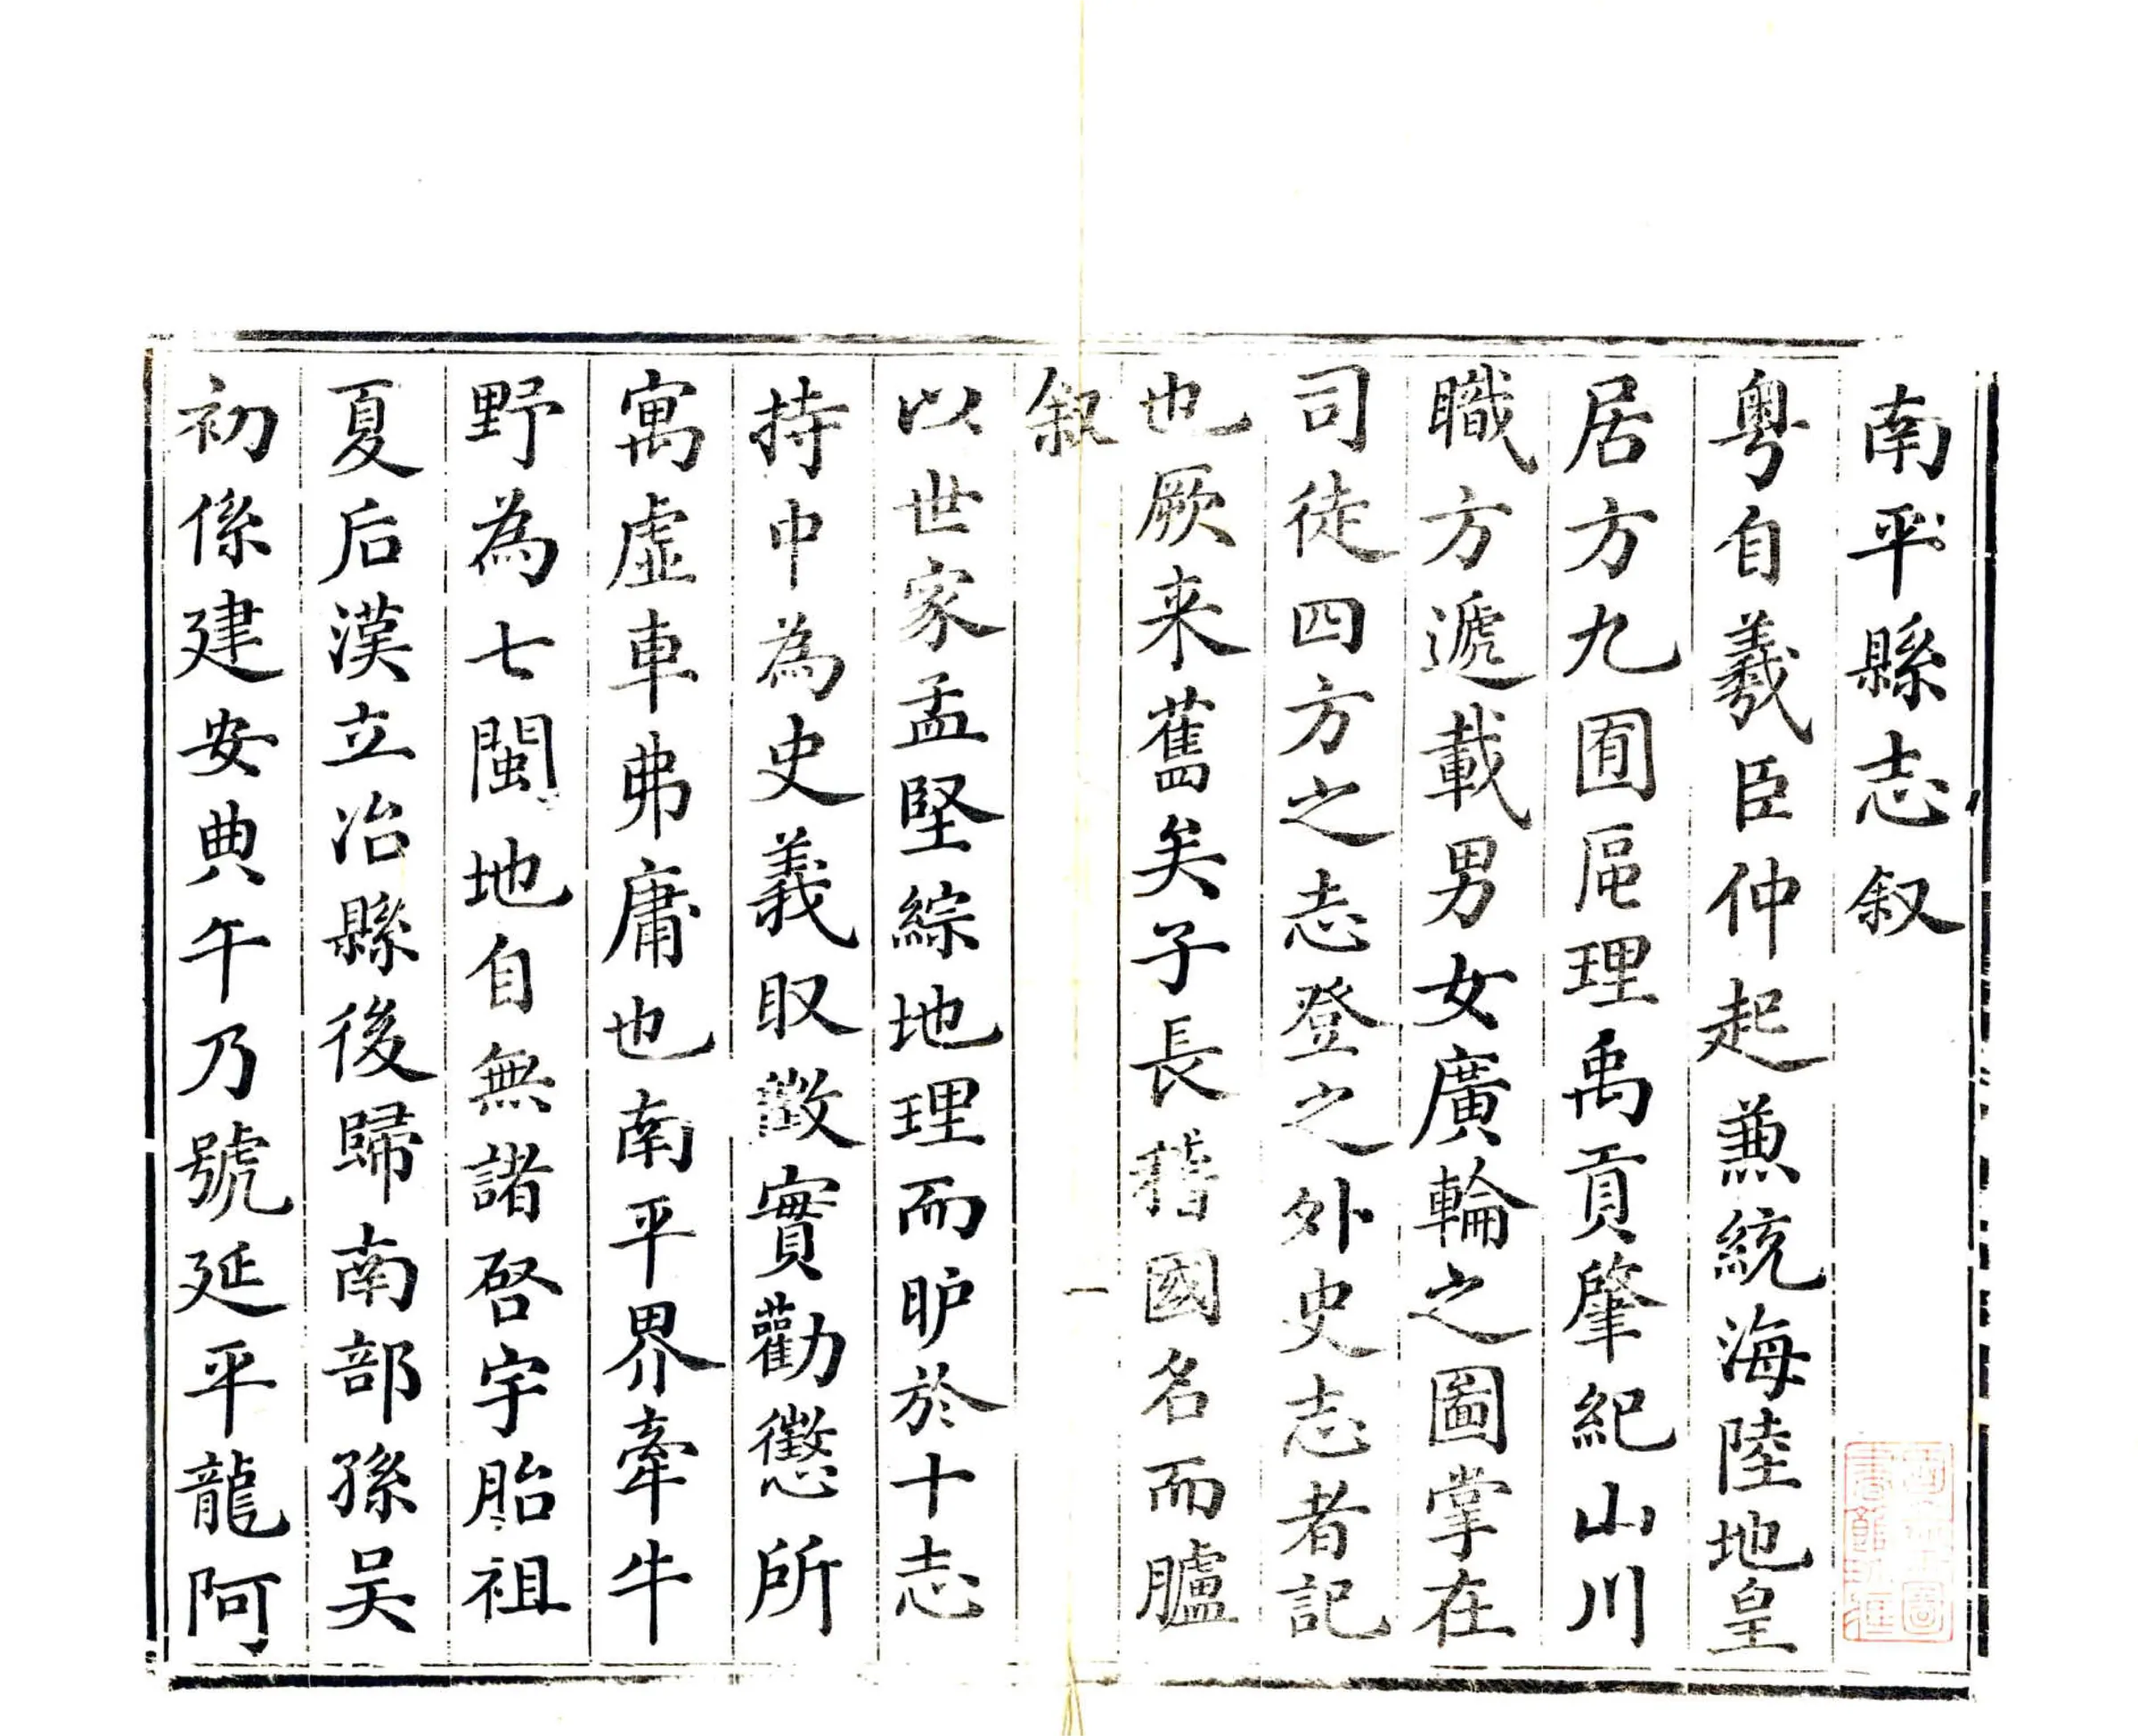 南平縣志叙
粤自羲臣仲起兼統海陸地皇
居方九囿區理禹貢肇紀山川
職方遞載男女廣輪之圖掌在
司徒四方之志登之外史志者記
也厥来舊矣子長稽國名而臚
叙
一
以世家孟堅綜地理而昈於十志
持中為史義取徵實勸懲所
寓虛車弗庸也南平界牽牛
野為七閩地自無諸啓宇胎祖
夏后漢立冶縣後歸南部孫吴
初係建安典午乃號延平龍阿